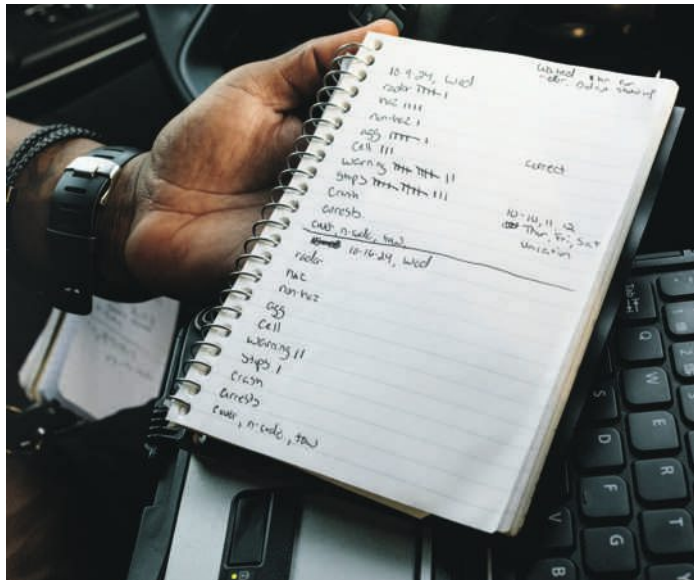 Waited 1 hr for
10-9-24, Wed
radar 𝍸 I
haz IIII
non-haz I
agg 𝍸 I
cell III
warning 𝍸 𝍸 II
stops 𝍸 𝍸 III
crash
arrests
cover, n-code, tow
correct
10-10, 11, 12
Thur, Fri, Sat
vacation
10-16-24, Wed
radar
haz
non-haz
agg
cell
warning II
stops I
crash
arrests
cover, n-code, tow
Tab
Q
W
S
D
R
F
T
G
V
B